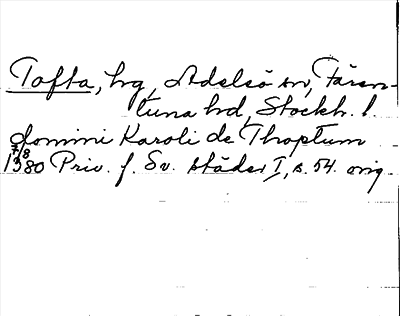 Tofta, hg, Adelsö sn, Fären-
tuna hd, Stockh. l
domini Karoli de Thoptum
7/8
1380 Priv. f. Sv. städer I, s. 54. orig.